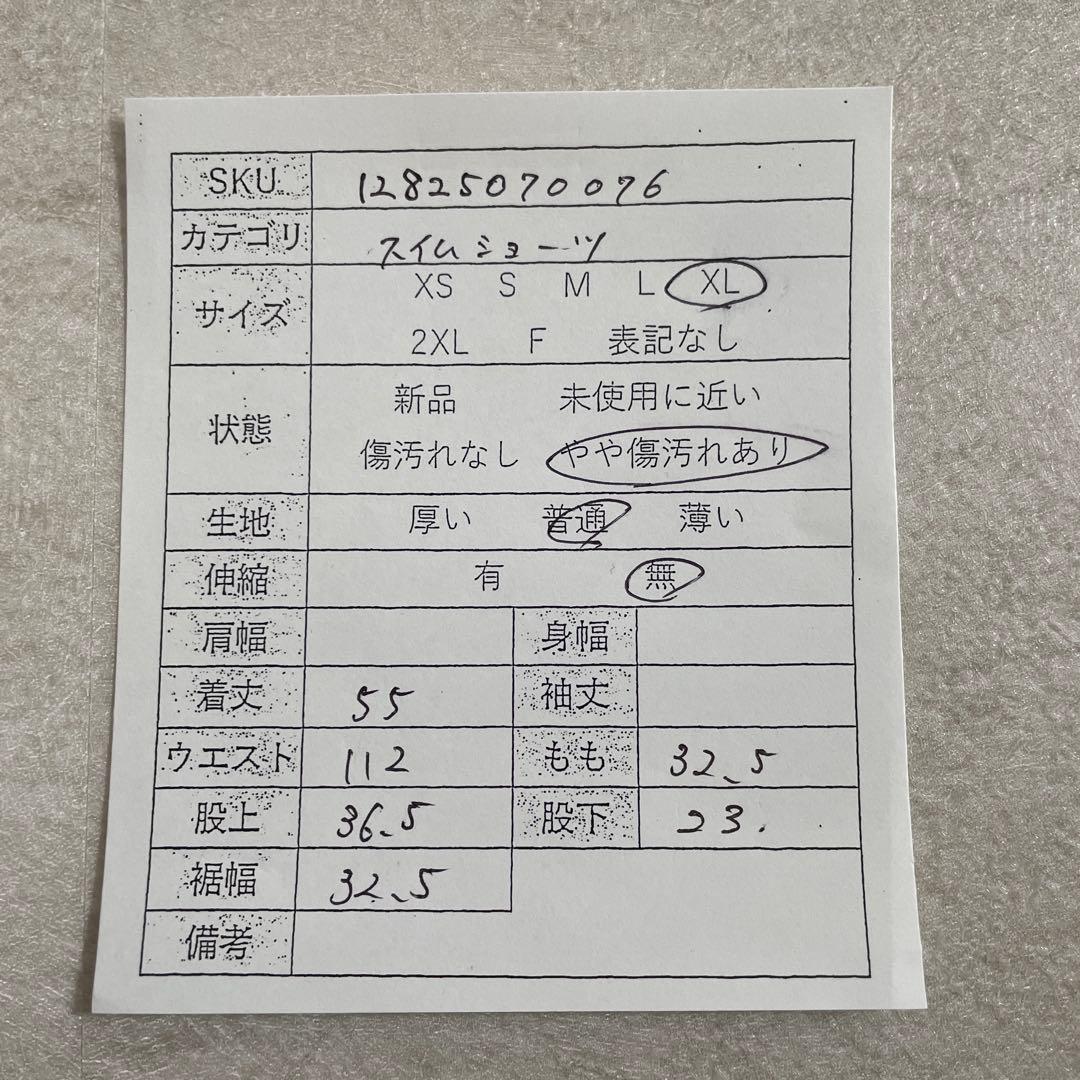 SKU 12825070076
カテゴリ スイムショーツ
サイズ XS S M L XL
2XL F 表記なし
状態 新品 未使用に近い
傷汚れなし やや傷汚れあり
生地 厚い 普通 薄い
伸縮 有 無
肩幅 身幅
着丈 55 袖丈
ウエスト 112 もも 32.5
股上 36.5 股下 23.
裾幅 32.5
備考